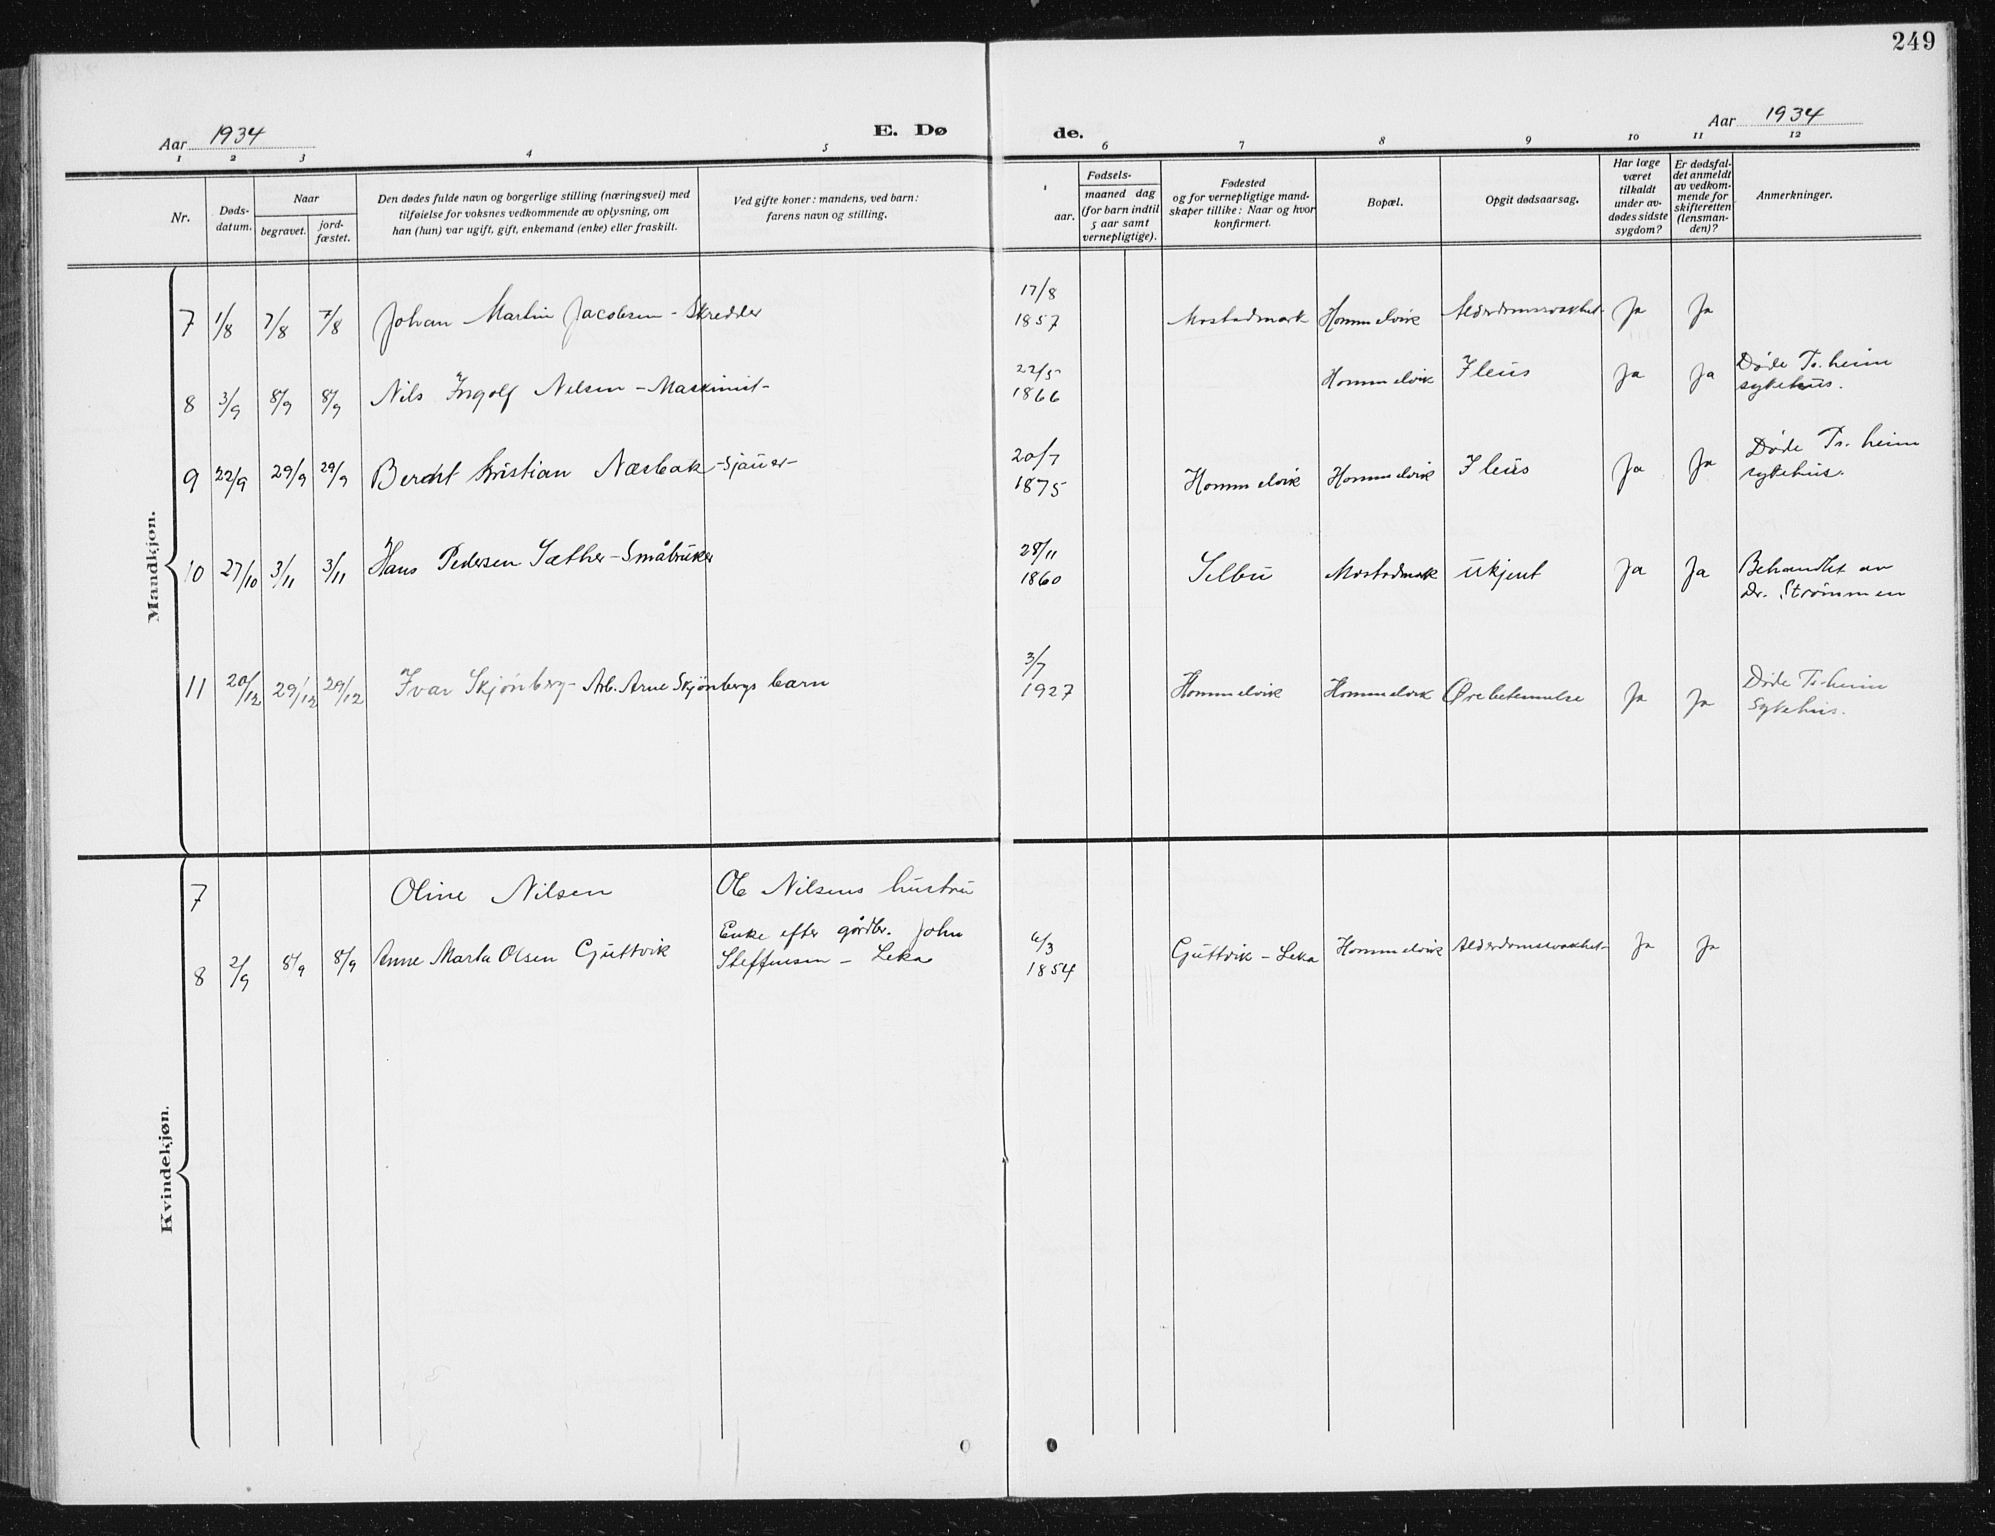 249
Aar 1934
E. Dø
de.
Aar 1934
1 2 3 4 5 6 7 8 9 10 11 12
Nr.
Døds-
datum.
Naar
begravet.
jord-
fæstet.
Den dødes fulde navn og borgerlige stilling (næringsvei) med
tilføielse for voksnes vedkommende av oplysning, om
han (hun) var ugift, gift, enkemand (enke) eller fraskilt.
Ved gifte koner: mandens, ved barn:
farens navn og stilling.
aar.
Fødsels-
maaned dag
(for barn indtil
5 aar samt
vernepligtige).
Fødested
og for vernepligtige mand-
skaper tillike: Naar og hvor
konfirmert.
Bopæl.
Opgit dødsaarsag.
Har læge
været
tilkaldt
under av-
dødes sidste
sygdom?
Er dødsfal-
det anmeldt
av vedkom-
mende for
skifteretten
(lensman-
den)?
Anmerkninger.
Maandkjøn.
7 1/8 7/8 7/8 Johan Martin Jacobsen - Skredder 17/8 1857 Mostadmark Hommelvik Alderdomssvakhet Ja Ja
8 3/9 8/9 8/9 Nils Ingolf Nilsen - Maskinist - 22/5 1866 Hommelvik Ileus Ja Ja Døde Tr.heim
sykehus.
9 22/9 29/9 29/9 Berent Kristian Næsbak - Sjauer - 20/7 1875 Hommelvik Hommelvik Ileus Ja Ja Døde Tr.heim
sykehus.
10 27/10 3/11 3/11 Hans Pedersen Sæther - Småbruker 28/11 1860 Selbu Mostadmark Ukjent Ja Ja Behandlet av
Dr. Strømmen
11 20/12 29/12 29/12 Ivar Skjønberg - Arb. Arne Skjønbergs barn 3/7 1927 Hommelvik Hommelvik Ørebetennelse Ja Ja Døde Tr.heim
Sykehus.
Kvindekjøn.
7 Oline Nilsen Ole Nilsens hustru
8 2/9 8/9 8/9 Anne Marta Olsen Gjuttvik Enke efter gårdbr. John
Steffensen - Leka 6/3 1854 Gjuttvik - Leka Hommelvik Alderdomssvakhet Ja Ja